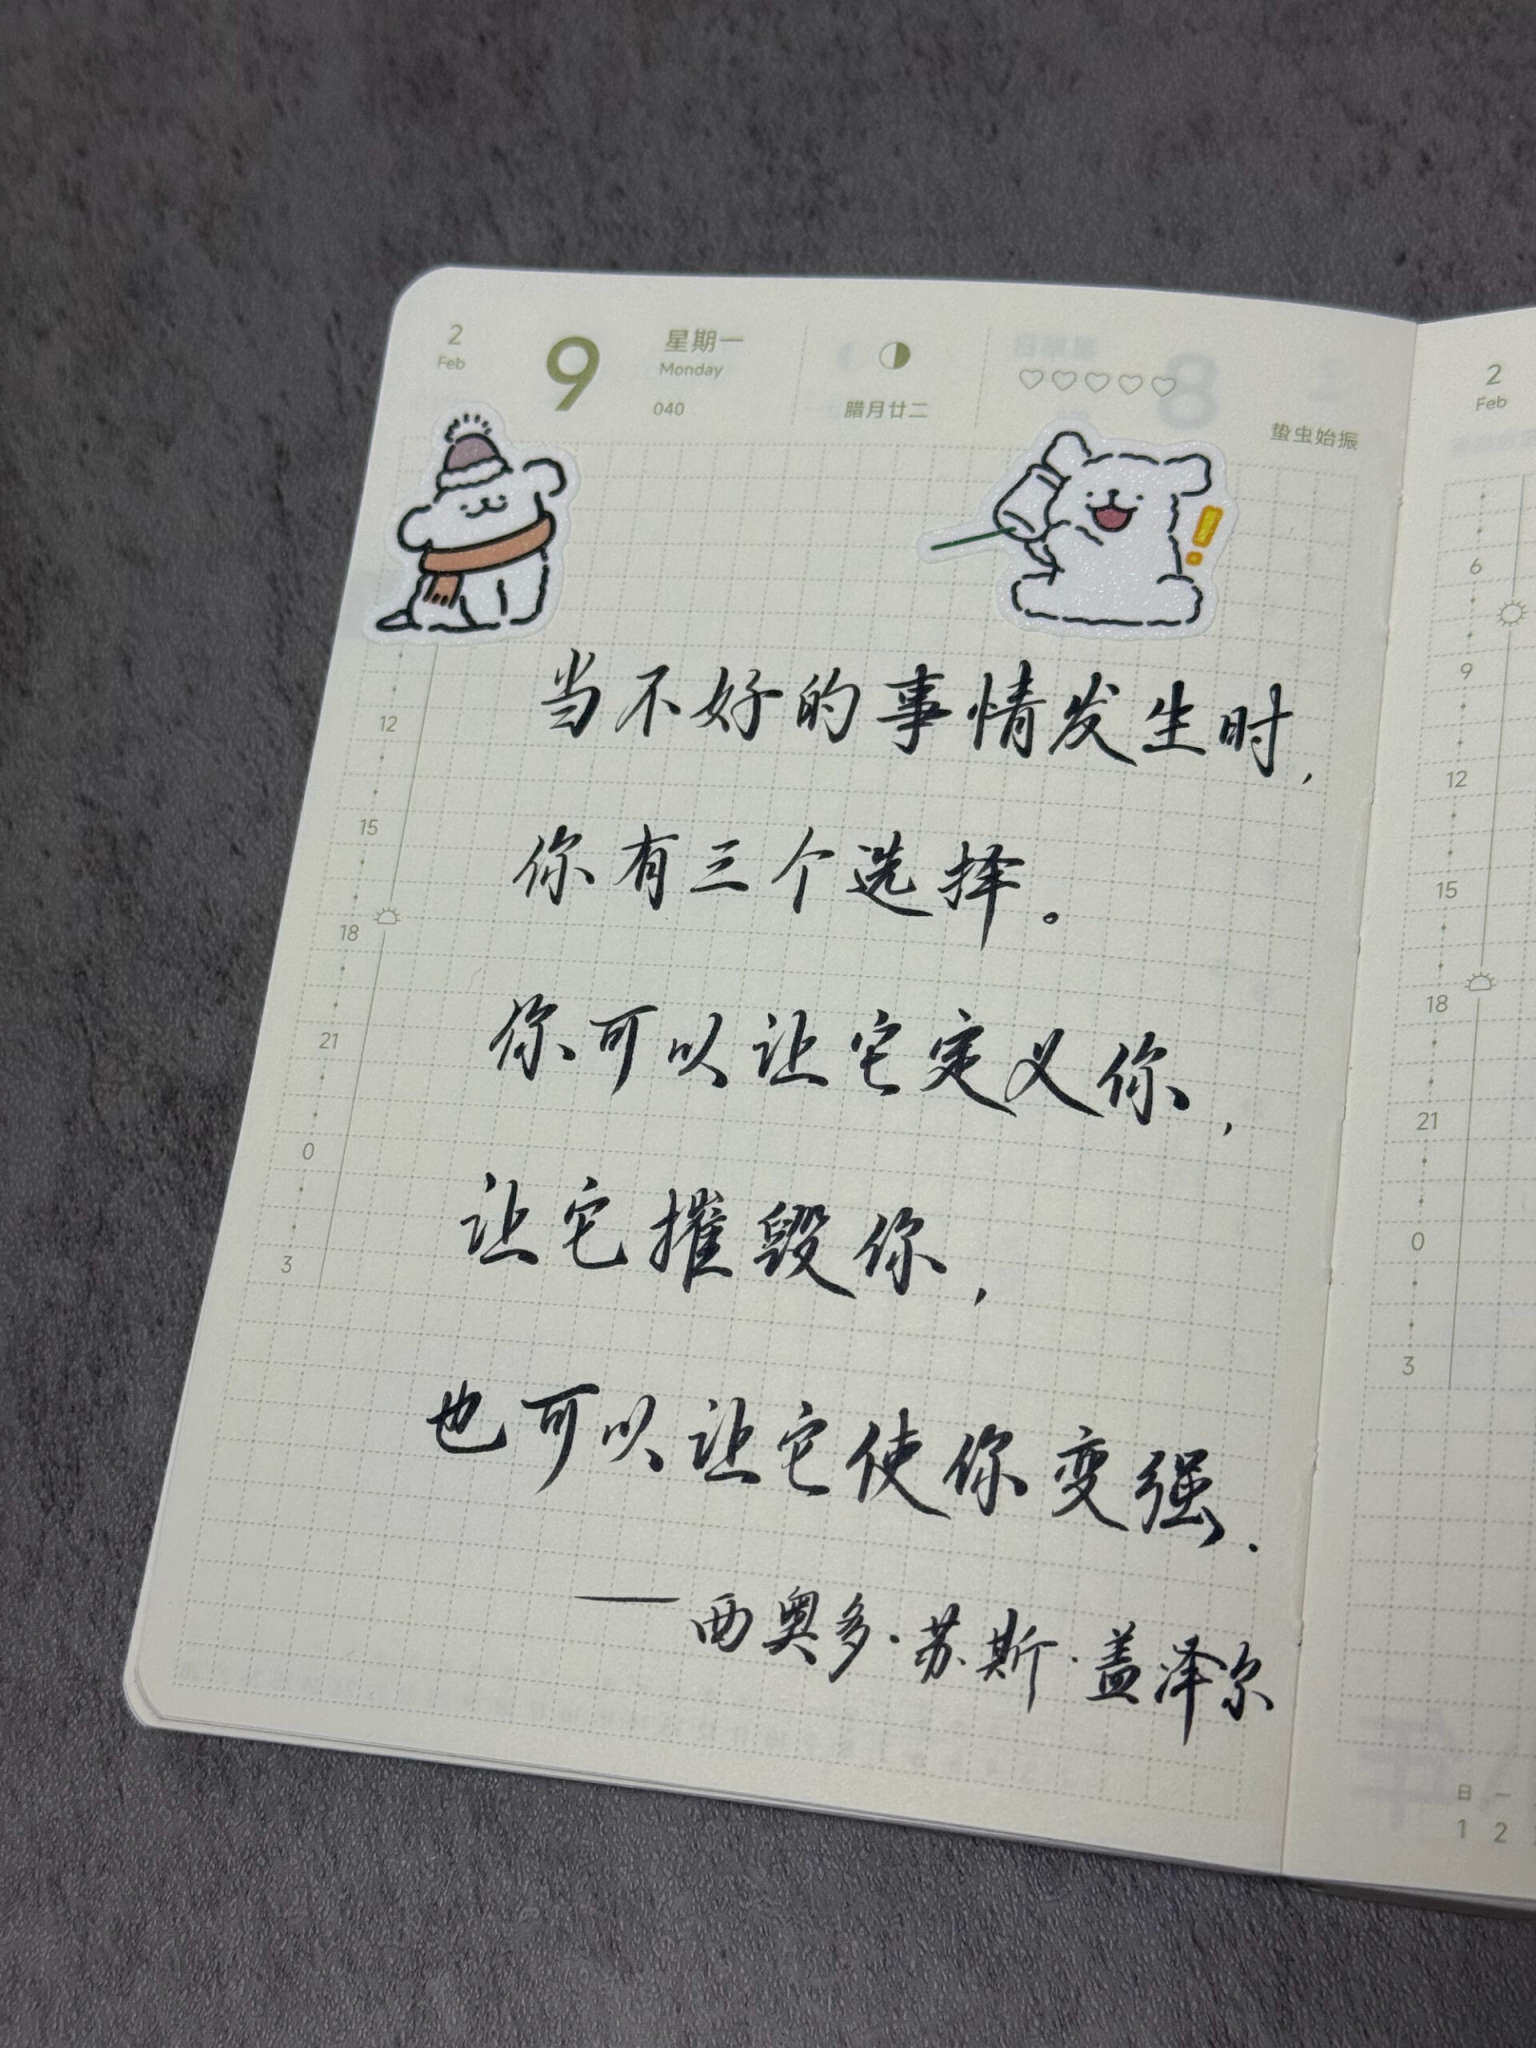 2
Feb
9
星期一
Monday
040
腊月廿二
蛰虫始振
当不好的事情发生时,
你有三个选择。
你可以让它定义你,
让它摧毁你,
也可以让它使你变强.
——西奥多·苏斯·盖泽尔
12
15
18
21
0
3
2
Feb
6
9
12
15
18
21
0
3
日 一
1 2